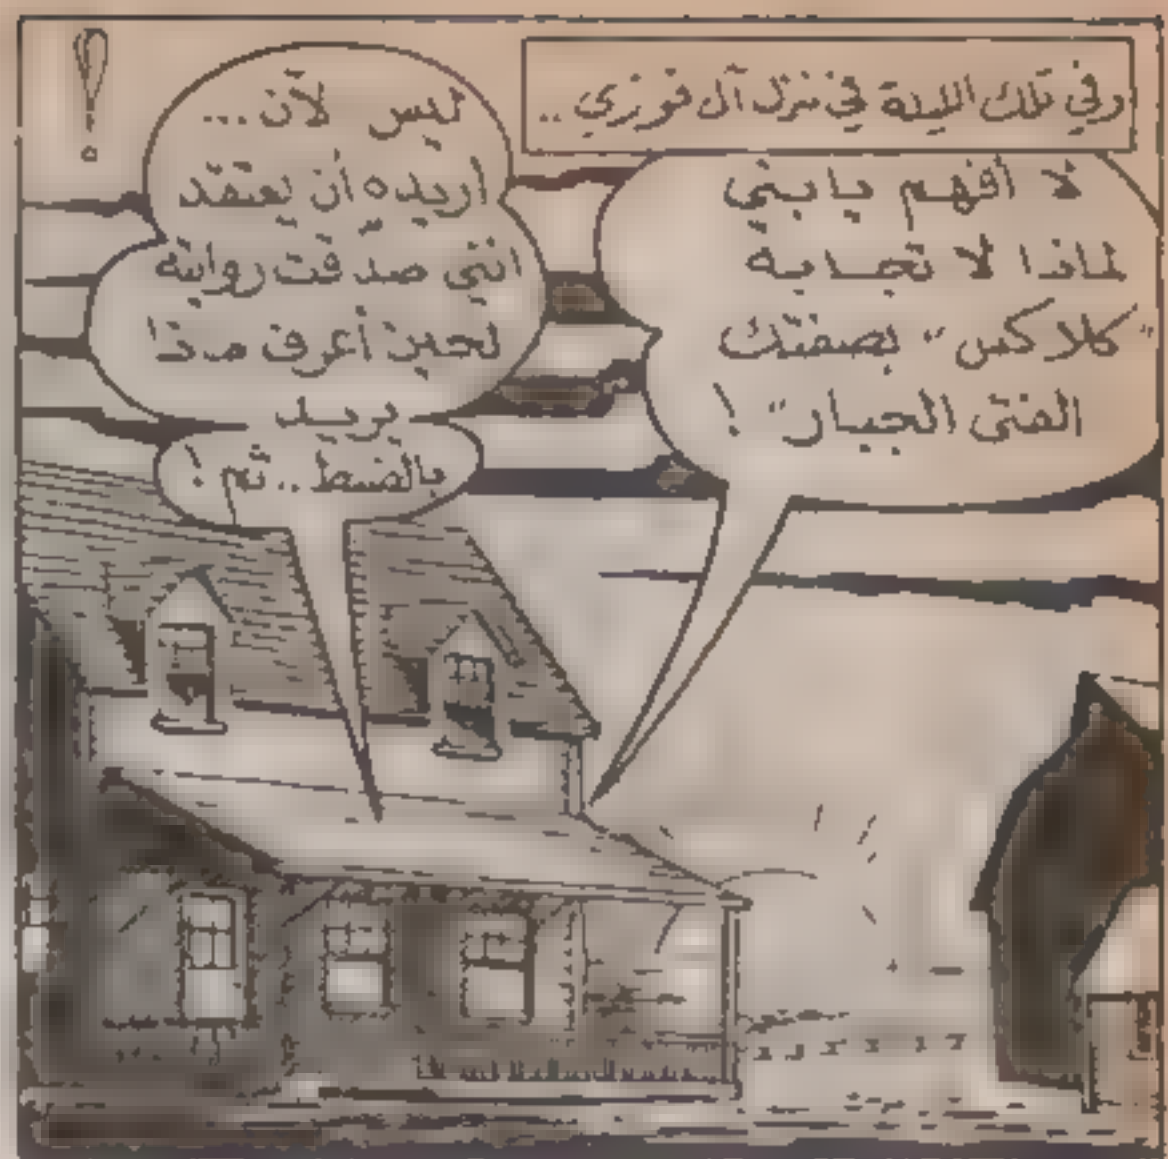 وفي تلك الليلة في منزل آل فوزي ..
لا أفهم يا بني
لماذا لا تجابه
"كلاكس" بصفتك
الفتى الجبار" !
ليس لآن ...
أريده أن يعتقد
انني صدقت روايته
لحين أعرف ماذا
يريد
بالضبط .. ثم !
!